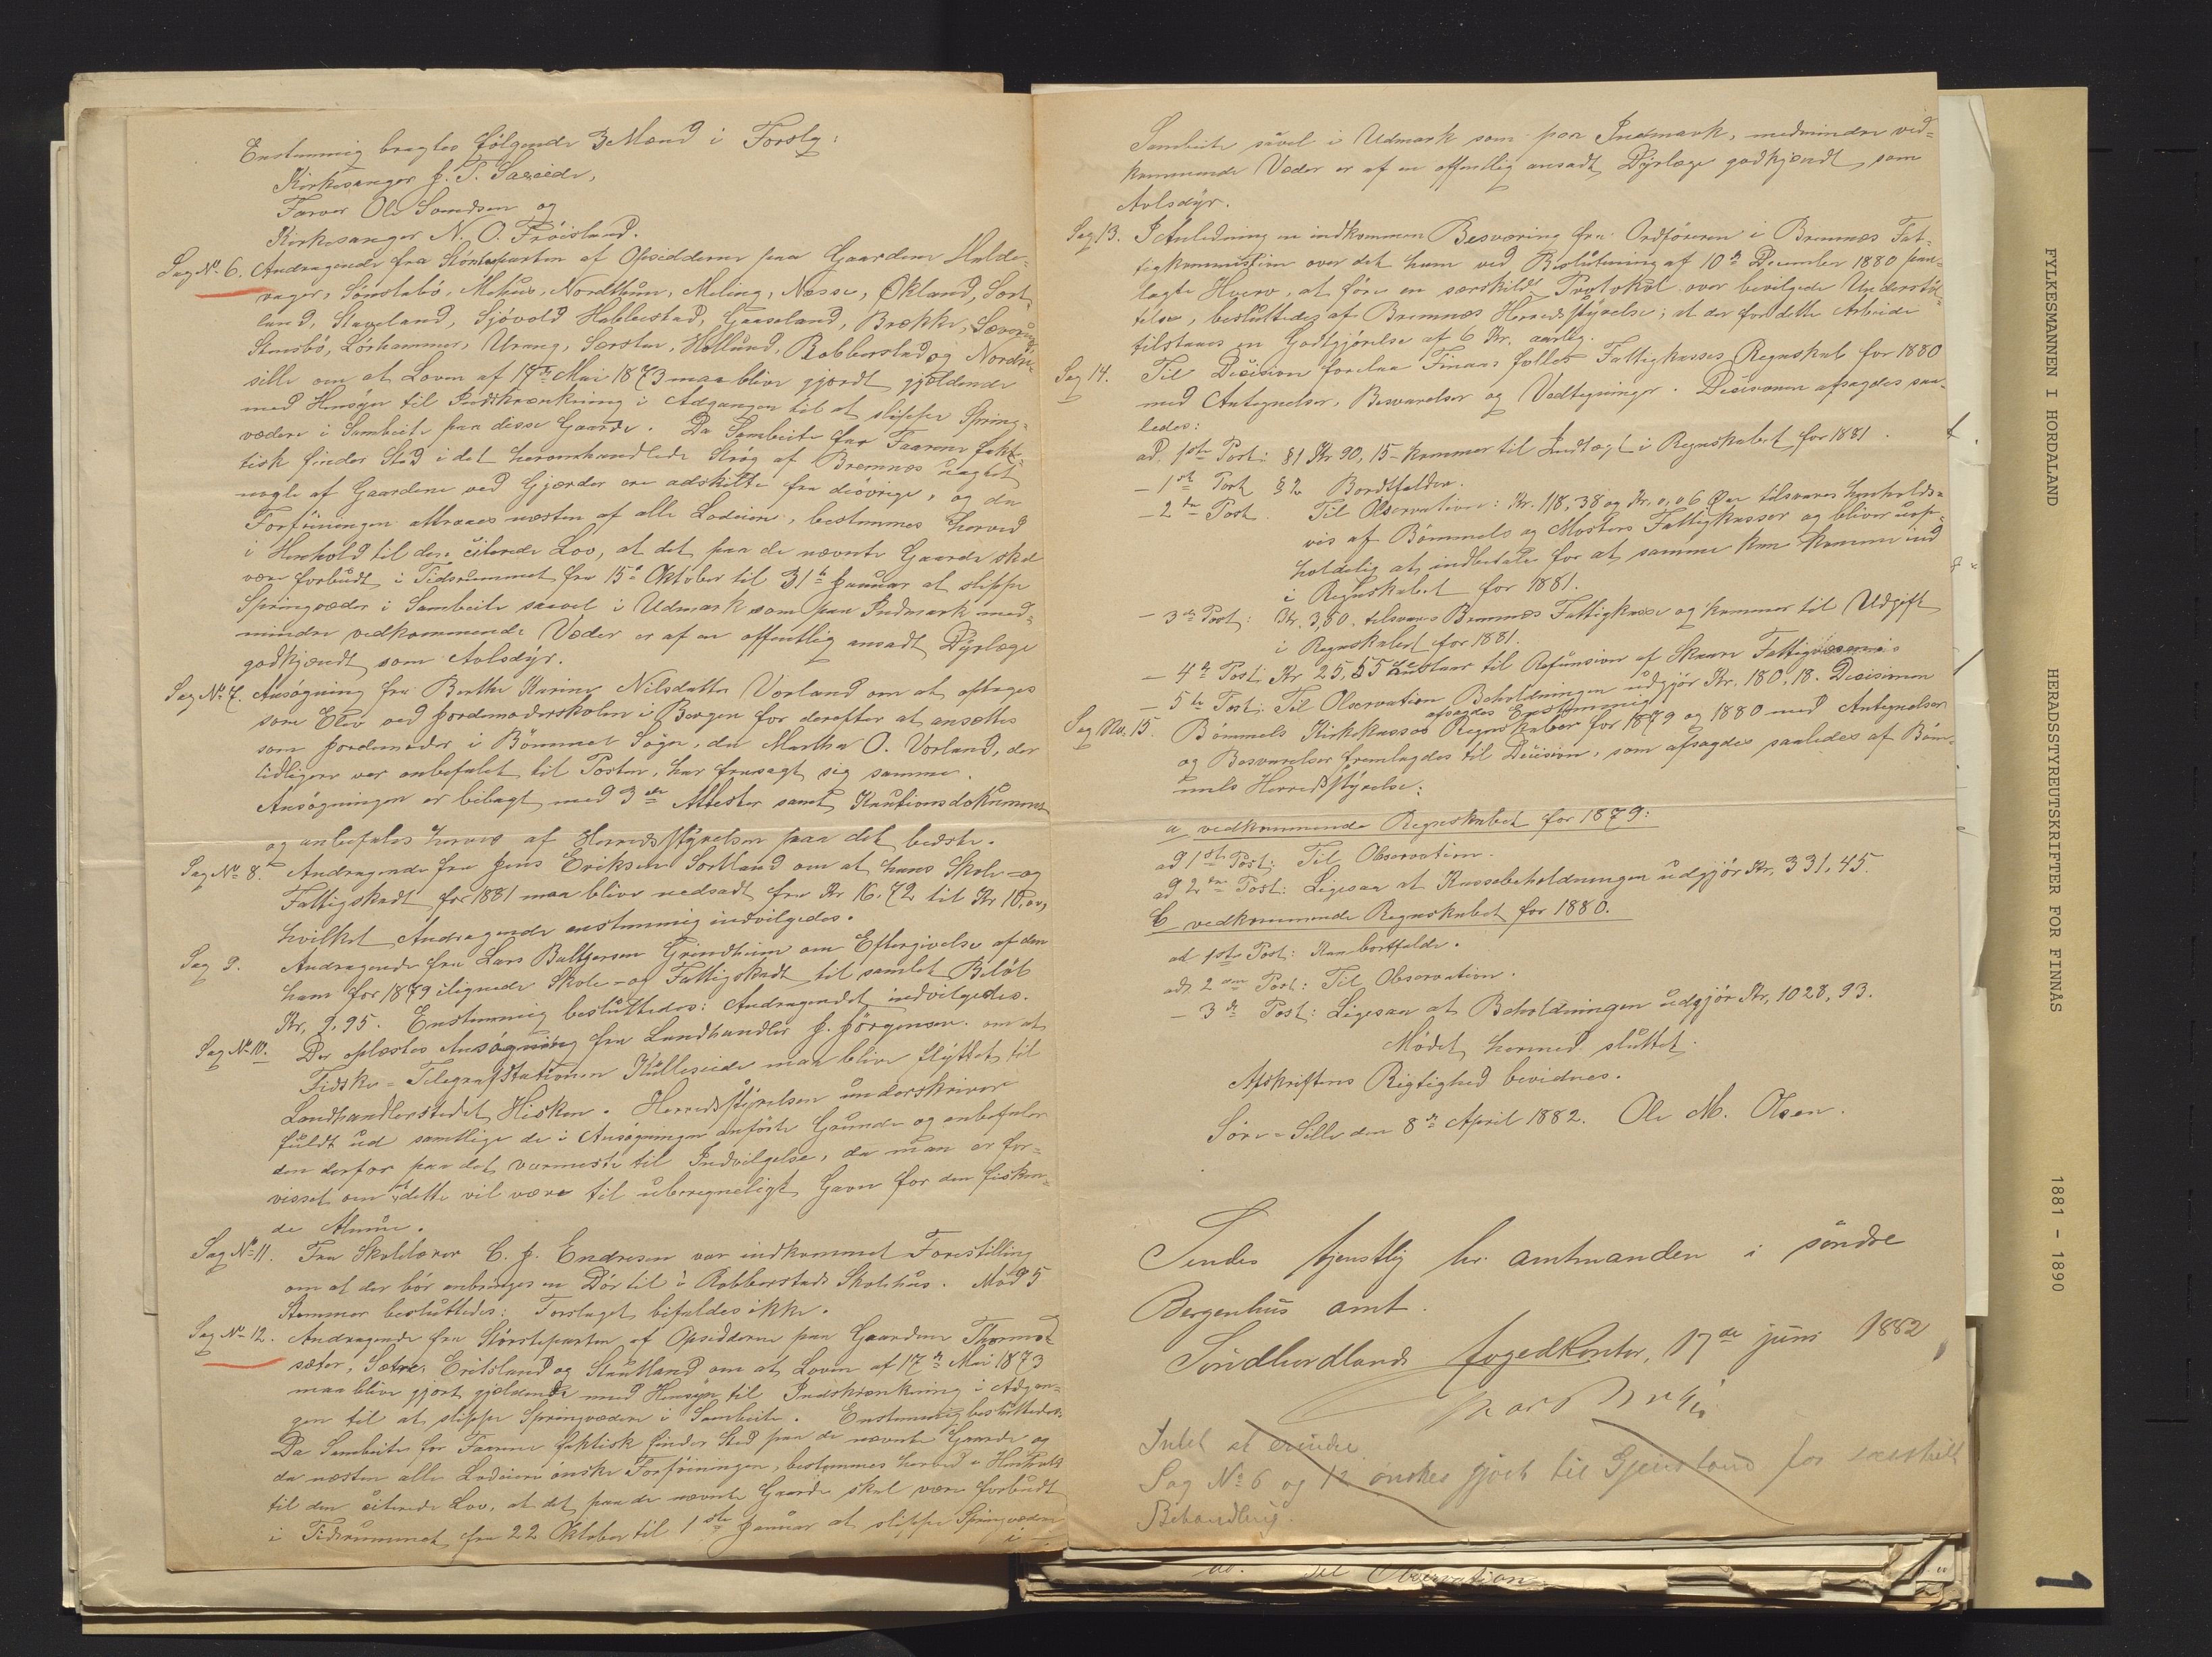 Enstemmig bragtes følgende 3 Mænd i Forslg:
Kirkesanger J. T. Sæeide,
Farver Ole Svendsen og
Kirkesanger N. O. Frøisland.
Sag No. 6. Andragende fra Størsteparten af Opsidderne paa Gaardene Halde-
vager, Sønstabø, Mehus, Nordthun, Meling, Næsse, Økland, Sort-
land, Staveland, Sjövold Hallestad, Gaaseland, Brække, Sæver
Stensbø, Lørhammer, Urang, Særsten, Hollund, Robberstad og Nordre
sille om at Loven af 17de Mai 1873 maa blive gjordt gjældende
med Hensyn til Indskrænkning i Adgangen til at slippe Spring-
vædere i Sambeite paa disse Gaarde. Da Sambeite for Faarene fakt-
tisk finder Sted i det heromhandlede Strøg af Bremnæs uagtet
nogle af Gaardene ved Gjærder ere adskilte fra deøvrige, og da
Forføiningen attraaes næsten af alle Lodeiere, bestemmes herved
i Henhold til den citerede Lov, at det paa de nævnte Gaarde skal
være forbudt i Tidsrummet fra 15de Oktober til 31te Januar at slippe
Springvæder i Sambeite saavel i Udmark som paa Indmark med-
mindre vedkommende Væder er af en offentlig ansadt Dyrlæge
godkjendt som Avlsdyr.
Sag No. 7. Ansøgning fra Berthe Karine Nilsdatter Vorland om at optages
som Elev ved Jordemoderskolen i Bergen for derefter at ansættes
som Jordemoder i Bömmel Sogn, da Martha O. Vorland, der
tidligere var anbefalet til Posten, har frasagt sig samme.
Ansøgningen er bilagt med 3de Attester samt Kautionsdokument
og anbefales herved af Herredsstyrelsen paa det bedste.
Sag No. 8. Andragende fra Jens Eriksen Sortland om at hans Skole- og
Fattigskadt for 1881 maa blive nedsadt fra Kr 16.72 til Kr 10,00,
hvilket Andragende enstemmig indvilgedes.
Sag 9. Andragende fra Lars Baltzersen Grindheim om Eftergivelse af den
ham for 1879 ilignede Skole- og Fattigskadt til samlet Beløb
Kr, 9,95. Enstemmig besluttedes: Andragendet indvilgedes.
Sag No. 10. Der oplæstes Ansøgning fra Landhandler J. Jörgensen om at
Fidske-Telegrafstationen Kulleseide maa blive flyttet til
Landhandlerstedet Hisken. Herredsstyrelsen underskriver
fuldt ud samtlige de i Ansøgningen anførte Grunde og anbefaler
den derfor paa det varmeste til Indvilgelse, da man er for-
visset om at dette vil være til uberegneligt Gavn for den fisken-
de Almue.
Sag No. 11. Fra Skolelærer C. J. Endresen var indkommet Forestilling
om at der bör anbringes en Dör til i Robberstads Skolehus. Mod 5
Stemmer besluttedes: Forslaget bifaldes ikke.
Sag No. 12. Andragende fra Størsteparten af Opsidderne paa Gaardene Thormod
sæter, Sætre, Eritsland og Stautland om at Loven af 17de Mai 1873
maa blive gjort gjældende med Hensyn til Indskrænkning i Adgan-
gen til at slippe Springvædere i Sambeite. Enstemmig besluttedes
Da Sambeite for Faarene faktisk finder Sted paa de nævnte Gaarde og
da næsten alle Lodeiere ønske Forføiningen, bestemmes herved i Henhold
til den citerede Lov, at det paa de nævnte Gaarde skal være forbudt
i Tidsrummet fra 22 Oktober til 1ste Januar at slippe Springvædere
i
Sambeite såvel i Udmark som paa Indmark, medmindre ved-
kommende Væder er af en offentlig ansadt Dyrlæge godkjendt som
Avlsdyr.
Sag 13. I Anledning en indkommen Besværing fra Ordføreren i Bremnæs Fat-
tigkommission over det ham ved Beslutning af 10de December 1880 paa-
lagte Hverv, at føre en særskildt Protokol over bevilgede Understøt-
telser, besluttedes af Bremnæs Herredsstyrelse; at der for dette Arbeide
tilstaaes en Godtgjørelse af 6 Kr. aarlig.
Sag 14. Til Decision forelaa Finaas fælles Fattigkasses Regnskab for 1880
med Antegnelser, Besvarelser og Vedtegninger. Decisionen afsagdes saa-
ledes:
ad. 1ste Post: §1 Kr 90,15 kommer til Indtægt i Regnskabet for 1881.
- 1ste Post §2 Bordtfalder.
- 2den Post. Til Observation: Kr. 118,38 og Kr. 0,06 Øre tilsvares henholds-
vis af Bømmels og Mosters Fattigkasser og bliver uop-
holdelig at indbetale for at samme kan komme ind
i Regnskabet for 1881.
- 3die Post: Kr. 3,80. tilsvares Bremnæs Fattigkasse og kommer til Udgift
i Regnskabet for 1881.
- 4de Post: Kr 25,55 henstaar til Refusion af Skaare Fattigvæsen.
- 5te Post: Til Observation Beholdningen udgjør Kr. 180,18. Decisionen
afsagdes Enstemmig
Sag No. 15. Bømmels Kirkekasses Regnskaber for 1879 og 1880 med Antegnelser
og Besvarelser fremlagdes til Decision, som afsagdes saaledes af Bøm-
mels Herredsstyrelse:
a vedkommende Regnskabet for 1879:
ad 1ste Post: Til Observation.
ad 2den Post: Ligesaa at Kassebeholdningen udgjør Kr, 331,45.
b vedkommende Regnskabet for 1880.
ad 1ste Post: Kan bortfalde.
ad, 2den Post: Til Observation.
- 3die Post: Ligesaa at Beholdningen udgjør Kr, 1028,93.
Mødet hermed sluttet.
Afskriftens Rigtighed bevidnes.
Søre-Sille den 8de April 1882. Ole M. Olsen.
Sendes tjenstlig hr. amtmanden i søndre
Bergenhus amt.
Søndhordlands fogedkontor, 17de juni 1882
Intet at erindre
Sag No 6 og 12 ønskes gjort til Gjenstand for særskilt
Behandling.
Til Observation
FYLKESMANNEN I HORDALAND HERADSSTYREUTSKRIFTER FOR FINNÅS 1881 - 1890
1